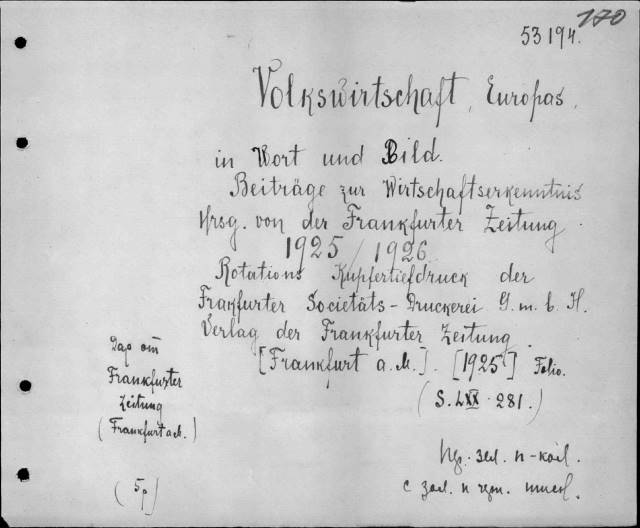 170
53194.
Volkswirtschaft, Europas,
in Wort und Bild.
Beiträge zur Wirtschaftserkenntnis
Hrsg. von der Frankfurter Zeitung
1925/1926
Rotations Kupfertiefdruck der
Frakfurter Societäts-Druckerei G.m.b.H.
Verlag der Frankfurter Zeitung.
[Frankfurt a.M.]. [1925] Folio.
(S. LXX. 281.)
Дар от
Frankfurter
Zeitung
(Frankfurt a.M.)
(5р)
зел. п-кол.
с зол. и чрн. тисн.